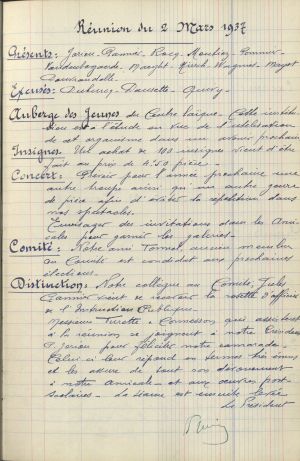 Réunion du 2 Mars 1937
Présents: Jeriou - Rannou - Racq - Mouchez - Pommier -
Vandenbogaerde - Maeght - Hirsch - Wagnies - Muyot
Excusés: Duburcq - Dauwette - Query -
Auberge des Jeunes du Centre laïque - Cette institu
est à l'étude en vue de l'utilisation
de cet organisme dans une année prochaine
Insignes: Un achat de 100 insignes vient d'être
fait au prix de 4.50 pièce.
Concert: Prévoir pour l'année prochaine une
autre troupe ainsi qu'un autre genre
de pièce afin d'éviter la répétition dans
nos spectacles.
Envisager des invitations dans les Ami
cales pour garnir les galeries -
Comité: Notre ami Tormel, ancien membre
au Comité est candidat aux prochaines
élections.
Distinction: Notre collègue au Comité, Jules
vient de recevoir la rosette d'officier
de l'Instruction Publique.
Messieurs Turotte & Connesson qui assistent
à la réunion se joignent à notre Président
P. Jeriou pour féliciter notre camarade.
Celui-ci leur répond en termes très émus
et les assure de tout son dévouement
à notre Amicale - et aux œuvres post-
scolaires. - La séance est ensuite levée
Le Président